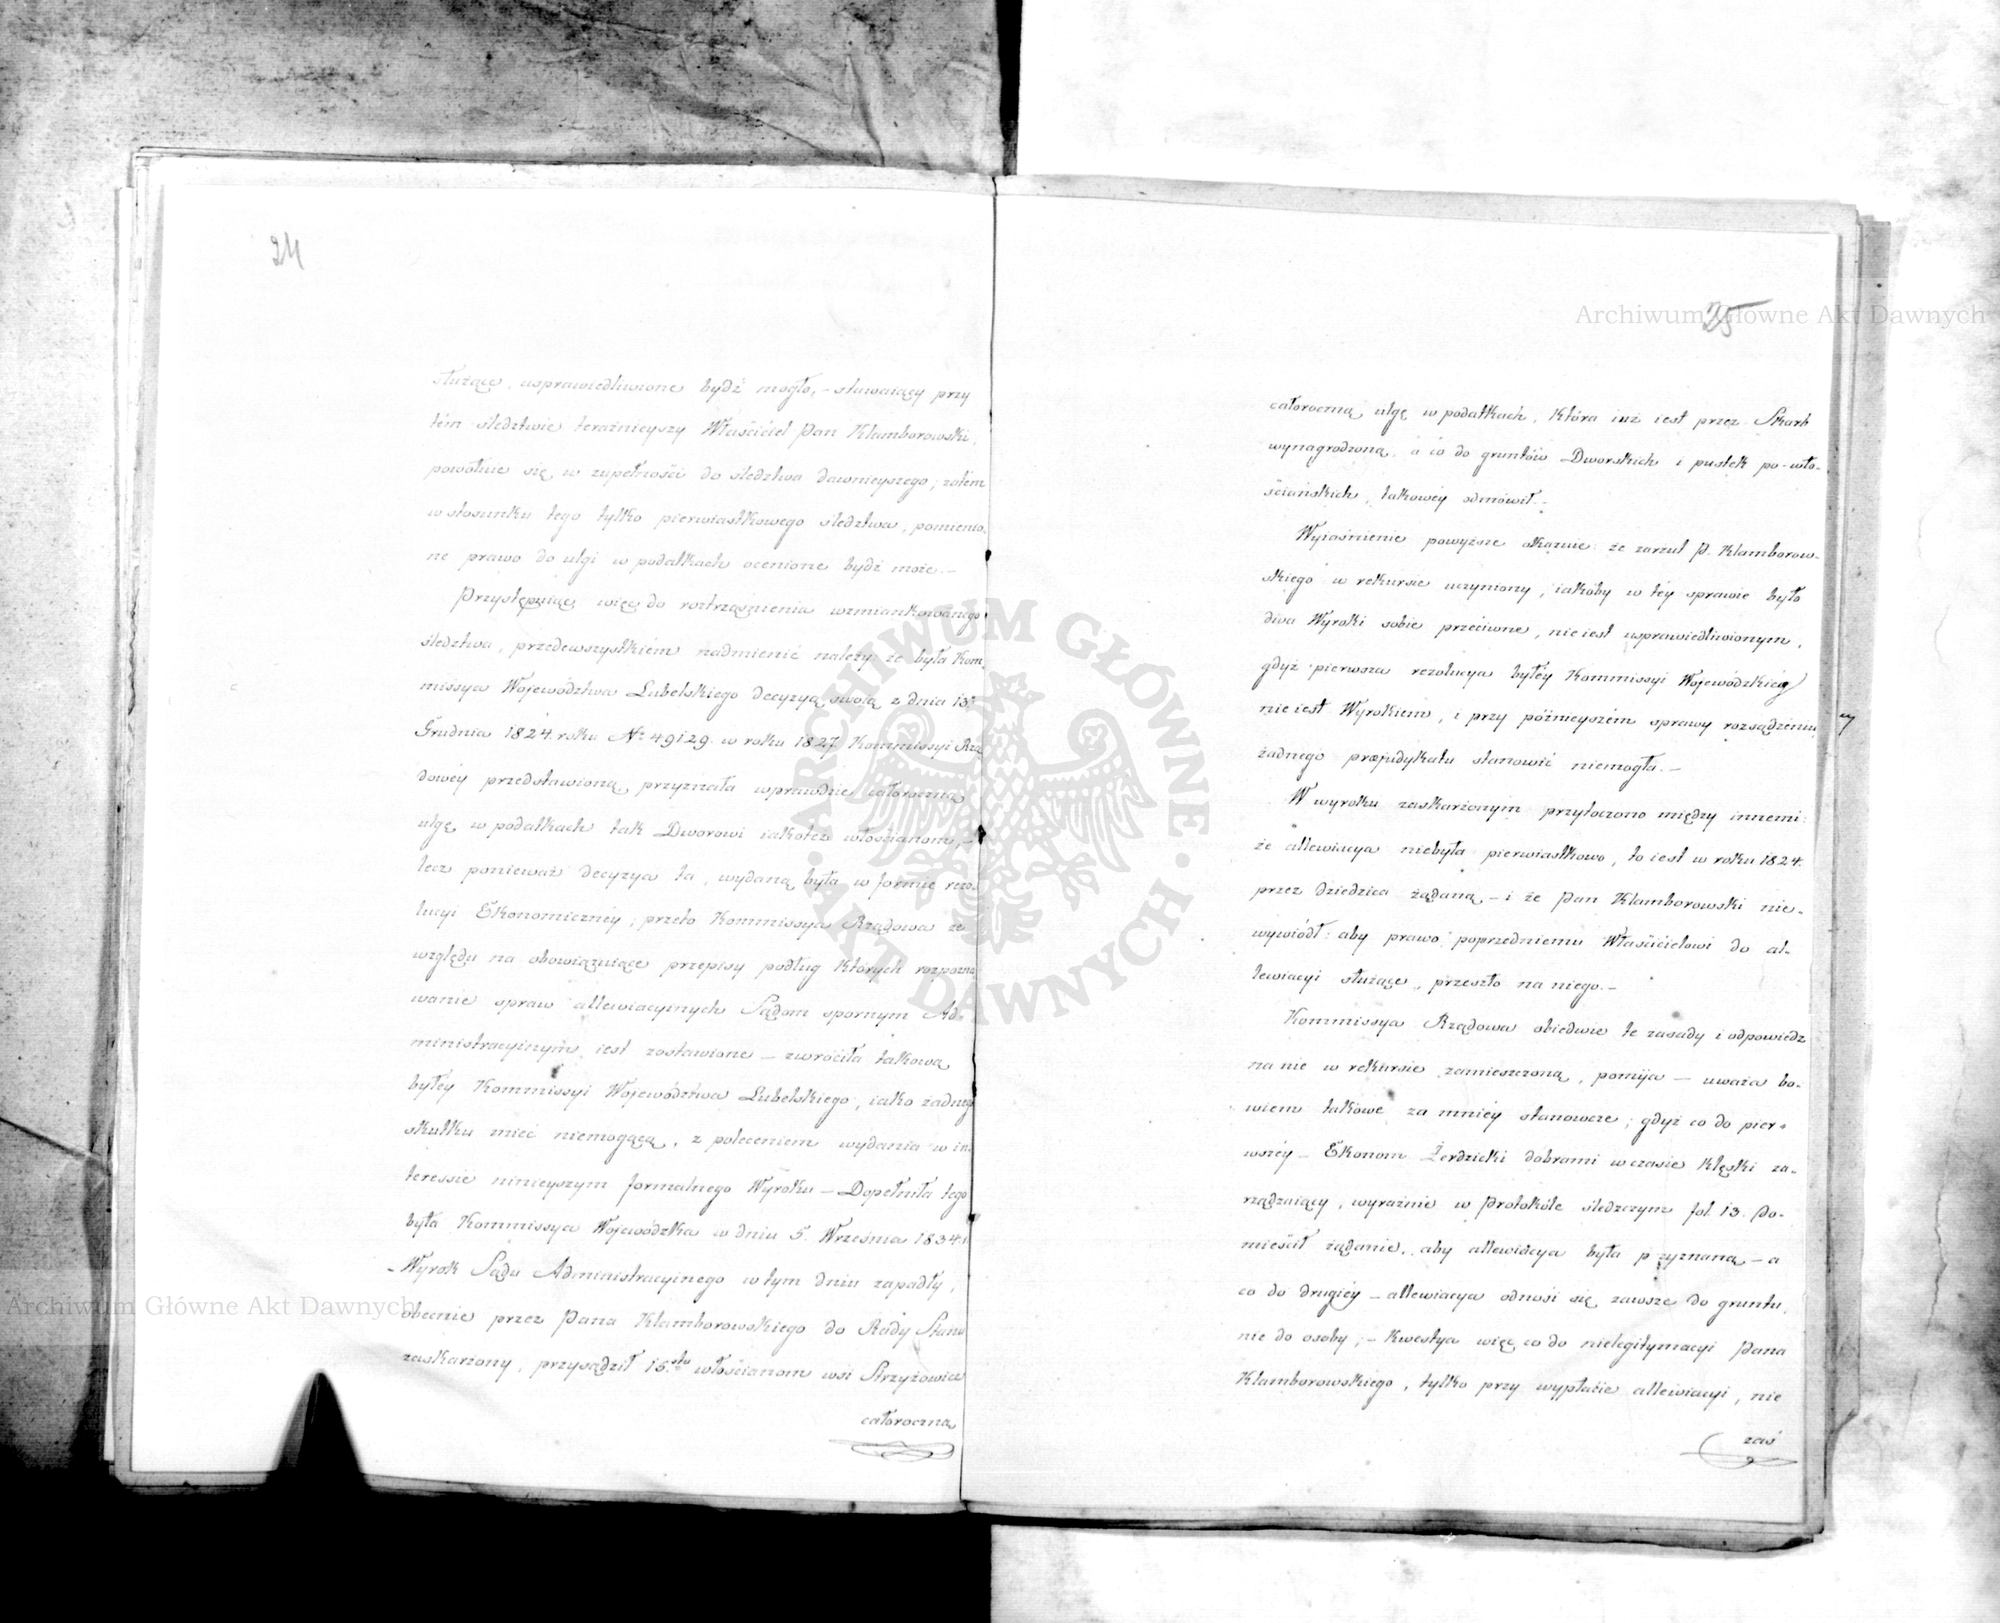 24
służące, usprawiedliwione bydź mogło, – stawaiący przy
tém śledztwie teraźnieyszy Właściciel Pan Klamborowski,
powołuie się w zupełności do śledztwa dawnieyszego; zatem
w stosunku tego tylko pierwiastkowego śledztwa, pomienio-
ne prawo do ulgi w podatkach ocenione bydź może. –
Przystępuiąc więc do roztrząśnienia wzmiankowanego
śledztwa, przedewszystkiém nadmienić należy: że była Kom-
missya Województwa Lubelskiego decyzyą swoią z dnia 13.
Grudnia 1824. roku No 49129. w roku 1827. Kommissyi Rzą-
dowéy przedstawioną, przyznała wprawdzie całoroczną
ulgę w podatkach tak Dworowi iakoteż włościanom, –
lecz ponieważ decyzya ta, wydaną była w formie rezo-
lucyi Ekonomicznéy; przeto Kommissya Rządowa ze
względu na obowiązuiące przepisy podług których rozpozna-
wanie spraw allewiacyinych Sądom spornym Ad-
ministracyinym iest zostawione – zwróciła takową
byłéy Kommissyi Województwa Lubelskiego, iako żadnego
skutku mieć niemogącą, z poleceniem wydania w in-
teressie ninieyszym formalnego Wyroku – Dopełniła tego
była Kommissya Wojewódzka w dniu 5. Września 1834 r.
– Wyrok Sądu Administracyinego w tym dniu zapadły,
obecnie przez Pana Klamborowskiego do Rady Stanu
zaskarżony, przysądził 15.stu włościanom wsi Strzyżowice
całoroczną
25
całoroczną ulgę w podatkach, która iuż iest przez Skarb
wynagrodzoną, a co do gruntów Dworskich i pustek po-wło-
ściańskich, takowéy odmówił. –
Wyiaśnienie powyższe okazuie: że zarzut P. Klamborow-
skiego w rekursie uczyniony, iakoby w téy sprawie było
dwa Wyroki sobie przeciwne, nie iest usprawiedliwionym,
gdyż pierwsza rezolucya byłéy Kommissyi Wojewódzkiéy
nie iest Wyrokiem, i przy późnieyszém sprawy rozsądzeniu
żadnego præjudykatu stanowić niemogła. –
W wyroku zaskarżonym przytoczono między innemi:
że allewiacya niebyła pierwiastkowo, to iest w roku 1824.
przez dziedzica żądaną, – i że Pan Klamborowski nie-
wywiódł: aby prawo poprzedniemu Właścicielowi do al-
lewiacyi służące, przeszło na niego. –
Kommissya Rządowa obiedwie te zasady i odpowiedz
na nie w rekursie zamieszczoną, pomija – uważa bo-
wiem takowe za mniéy stanowcze; gdyż co do pier-
wszéy – Ekonom Żerdzicki dobrami w czasie klęski za-
rządzaiący, wyraźnie w Protokóle śledczym fol. 13. Po-
mieścił żądanie, aby allewiacya była przyznaną – a
co do drugiéy – allewiacya odnosi się zawsze do gruntu,
nie do osoby; – kwestya więc co do nielegitymacyi Pana
Klamborowskiego, tylko przy wypłacie allewiacyi, nie
zaś
Archiwum Główne Akt Dawnych
Archiwum Główne Akt Dawnych
ARCHIWUM GŁÓWNE · AKT DAWNYCH ·